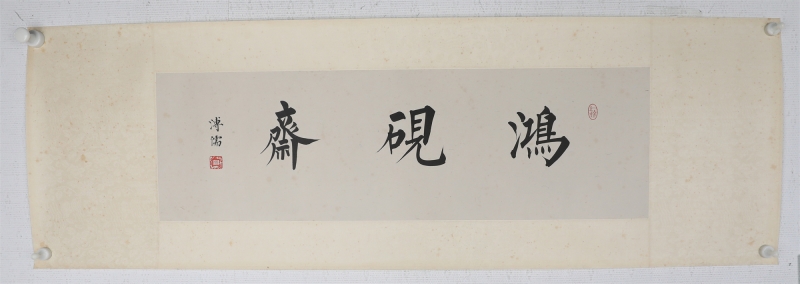 鴻硯齋
溥儒